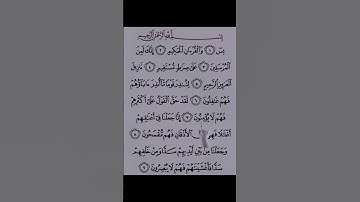 بِسْمِ اللَّهِ الرَّحْمَٰنِ الرَّحِيمِ
يسٓ ١ وَالْقُرْءَانِ الْحَكِيمِ ٢ إِنَّكَ لَمِنَ
الْمُرْسَلِينَ ٣ عَلَىٰ صِرَاطٍ مُّسْتَقِيمٍ ٤ تَنزِيلَ
الْعَزِيزِ الرَّحِيمِ ٥ لِتُنذِرَ قَوْمًا مَّا أُنذِرَ ءَابَاؤُهُمْ
فَهُمْ غَٰفِلُونَ ٦ لَقَدْ حَقَّ الْقَوْلُ عَلَىٰ أَكْثَرِهِمْ
فَهُمْ لَا يُؤْمِنُونَ ٧ إِنَّا جَعَلْنَا فِي أَعْنَٰقِهِمْ
أَغْلَٰلًا فَهِيَ الْأَذْقَانِ فَهُم مُّقْمَحُونَ ٨
وَجَعَلْنَا مِن بَيْنِ أَيْدِيهِمْ سَدًّا وَمِنْ خَلْفِهِمْ
سَدًّا فَأَغْشَيْنَٰهُمْ فَهُمْ لَا يُبْصِرُونَ ٩